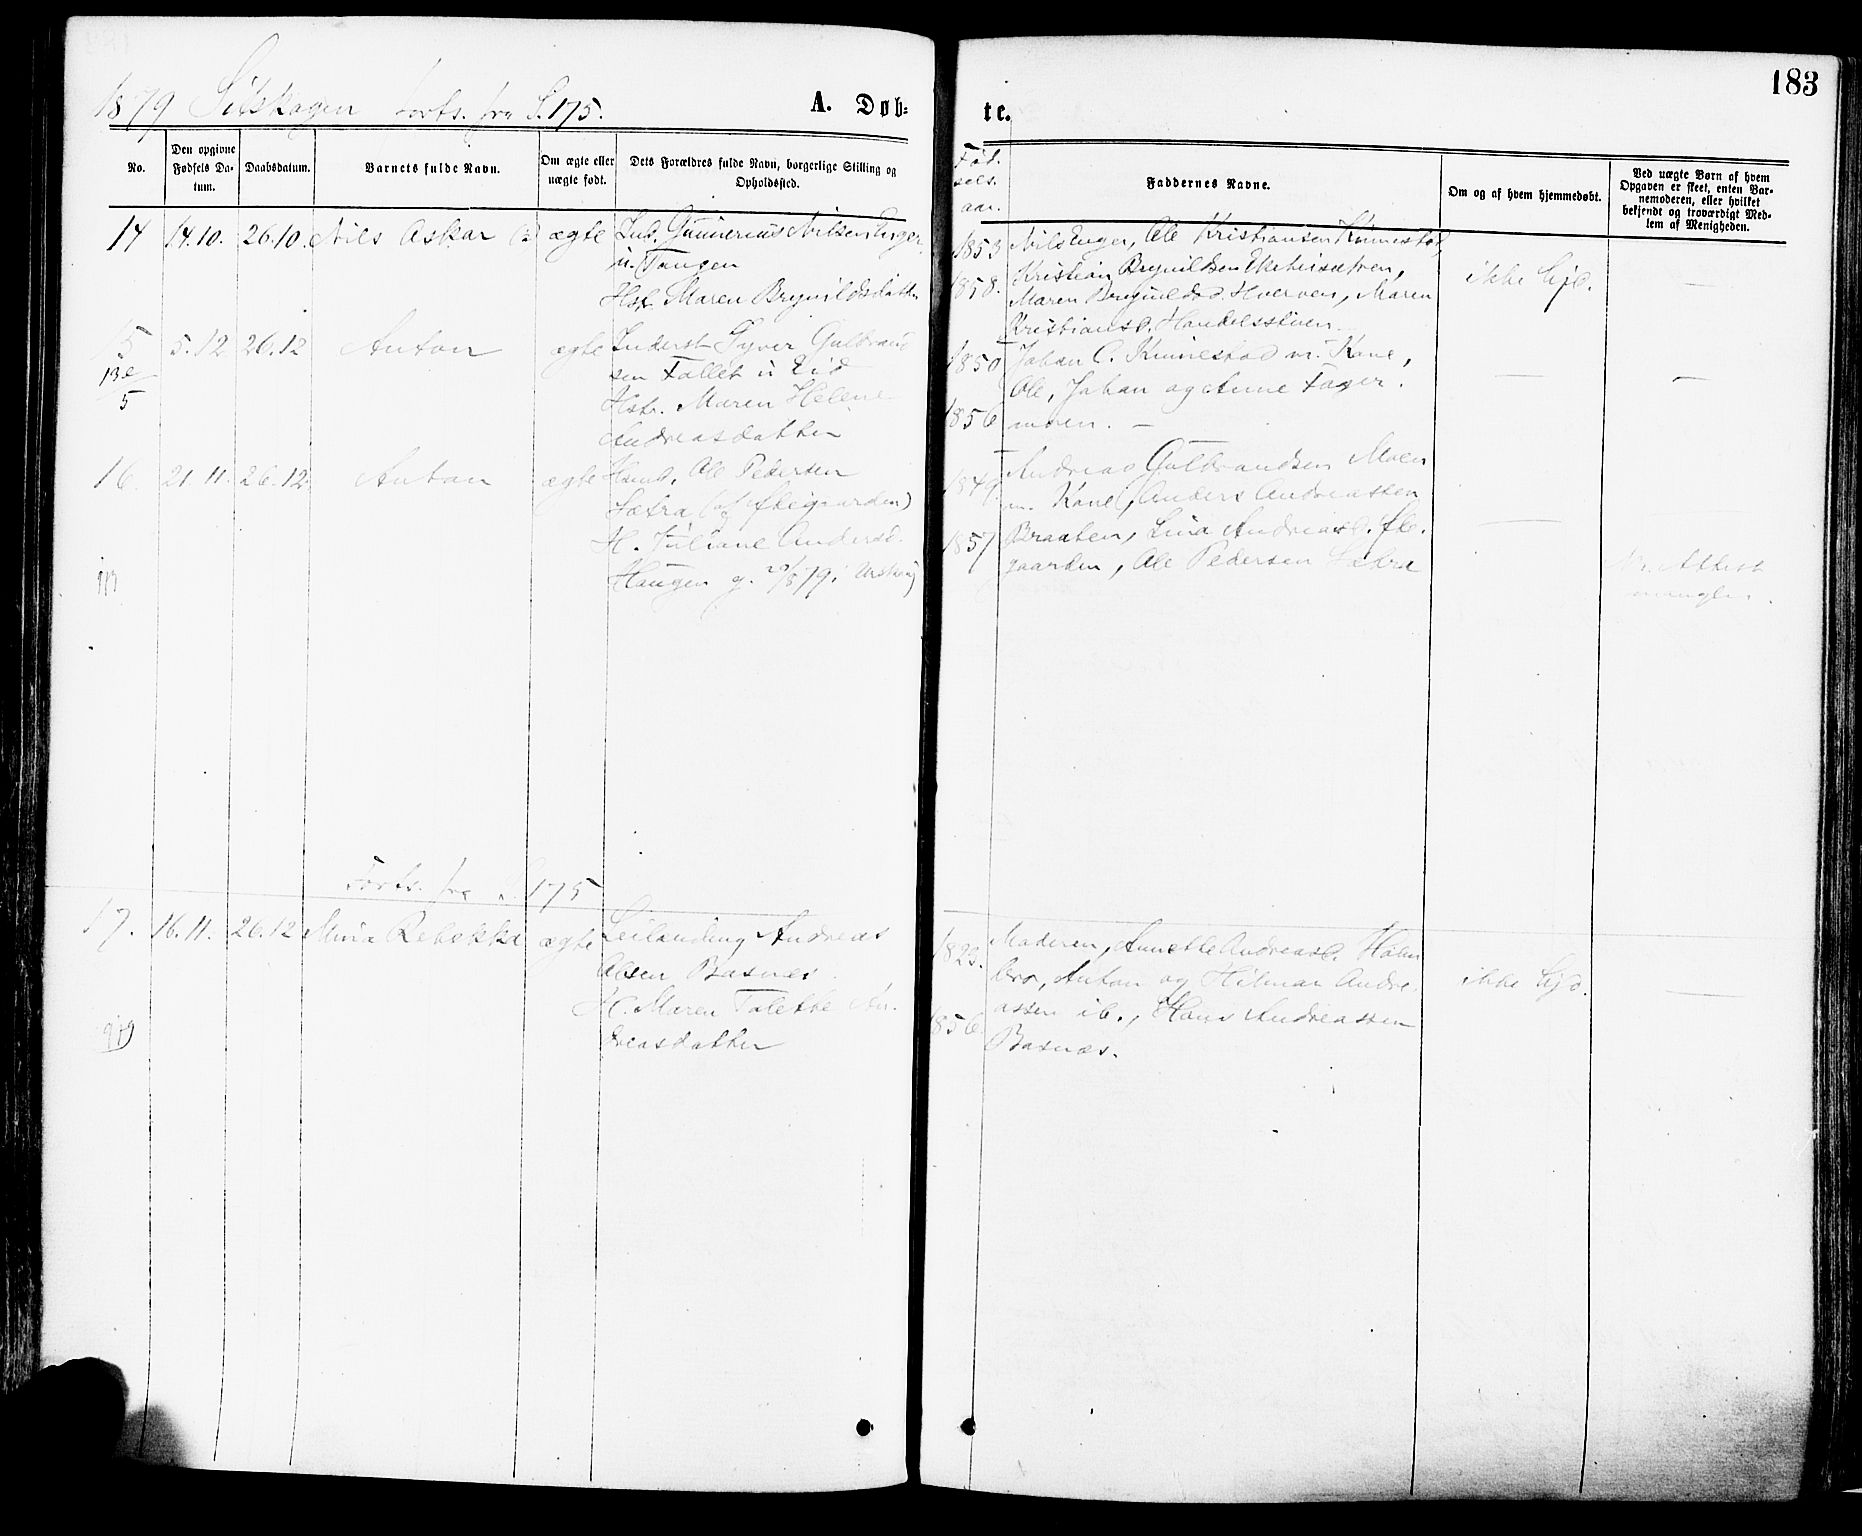 183
1879 Siïskogen forts. fra S. 175.
A. Døb=
te.
No.
Den opgivne Fødsels Da-
tum.
Daabsdatum.
Barnets fulde Navn.
Om ægte eller
uægte født.
Dets Forældres fulde Navn, borgerlige Stilling og
Opholdssted.
Fød-
sels-
aar.
Faddernes Navne.
Om og af hvem hjemmedøbt.
Ved uægte Børn af hvem
Opgaven er skeet, enten Bar-
nemoderen, eller hvilket
bekjendt og troværdigt Med-
lem af Menigheden.
14 14.10. 26.10. Nils Oskar ægte
Ind. Gunnerius Nilsen Enger
u. Tangen
Hstr. Maren Brynildsdatter
1853
1858.
Nils Enger, Ole Kristiansen Kinnestad,
Kristian Brynildsen
Maren Brynildsd. Hverven, Maren
Kristiansd. Handelsstuen.
ikke hjd.
—
15 5.12 26.12 Anton ægte
Inderst Syver Guldbrand
sen Fallet u. Eid
Hstr. Maren Helene
Andreasdatter
1850
1856
Johan C. Kinnestad m. Kone,
Ole, Johan og Anne Fager-
moen. —
—
—
16. 21.11. 26.12. Anton ægte
Husmd. Ole Pedersen
Sætra
H. Juliane Andersd.
Haugen g. 79 i Urskoug
1849.
1857
Andreas Guldbrandsen Moen
m. Kone, Anders Andreassen
Braaten, Lina Andreasd.
gaarden, Ole Pedersen Sætra
—
Attest
mangler.
Forts. fra S. 175
17. 16.11. 26.12 Mina Rebekka ægte
Leilænding Andreas
Olsen Basnæs.
H. Maren Tolette An-
dreasdatter
1823.
1856.
Moderen, Annette Andreasd. Holm-
bro, Anton og Hilmar Andre-
assen ib., Hans Andreassen
Basnæs.
ikke hjd.
—